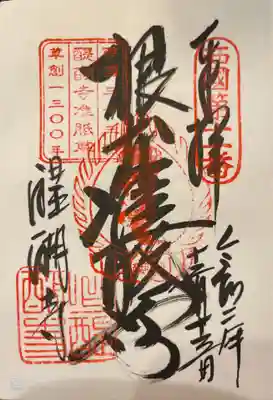 西國第十一番
奉拝
令和二年
根本准胝尊
醍醐寺准胝堂
草創一三〇〇年
醍醐寺